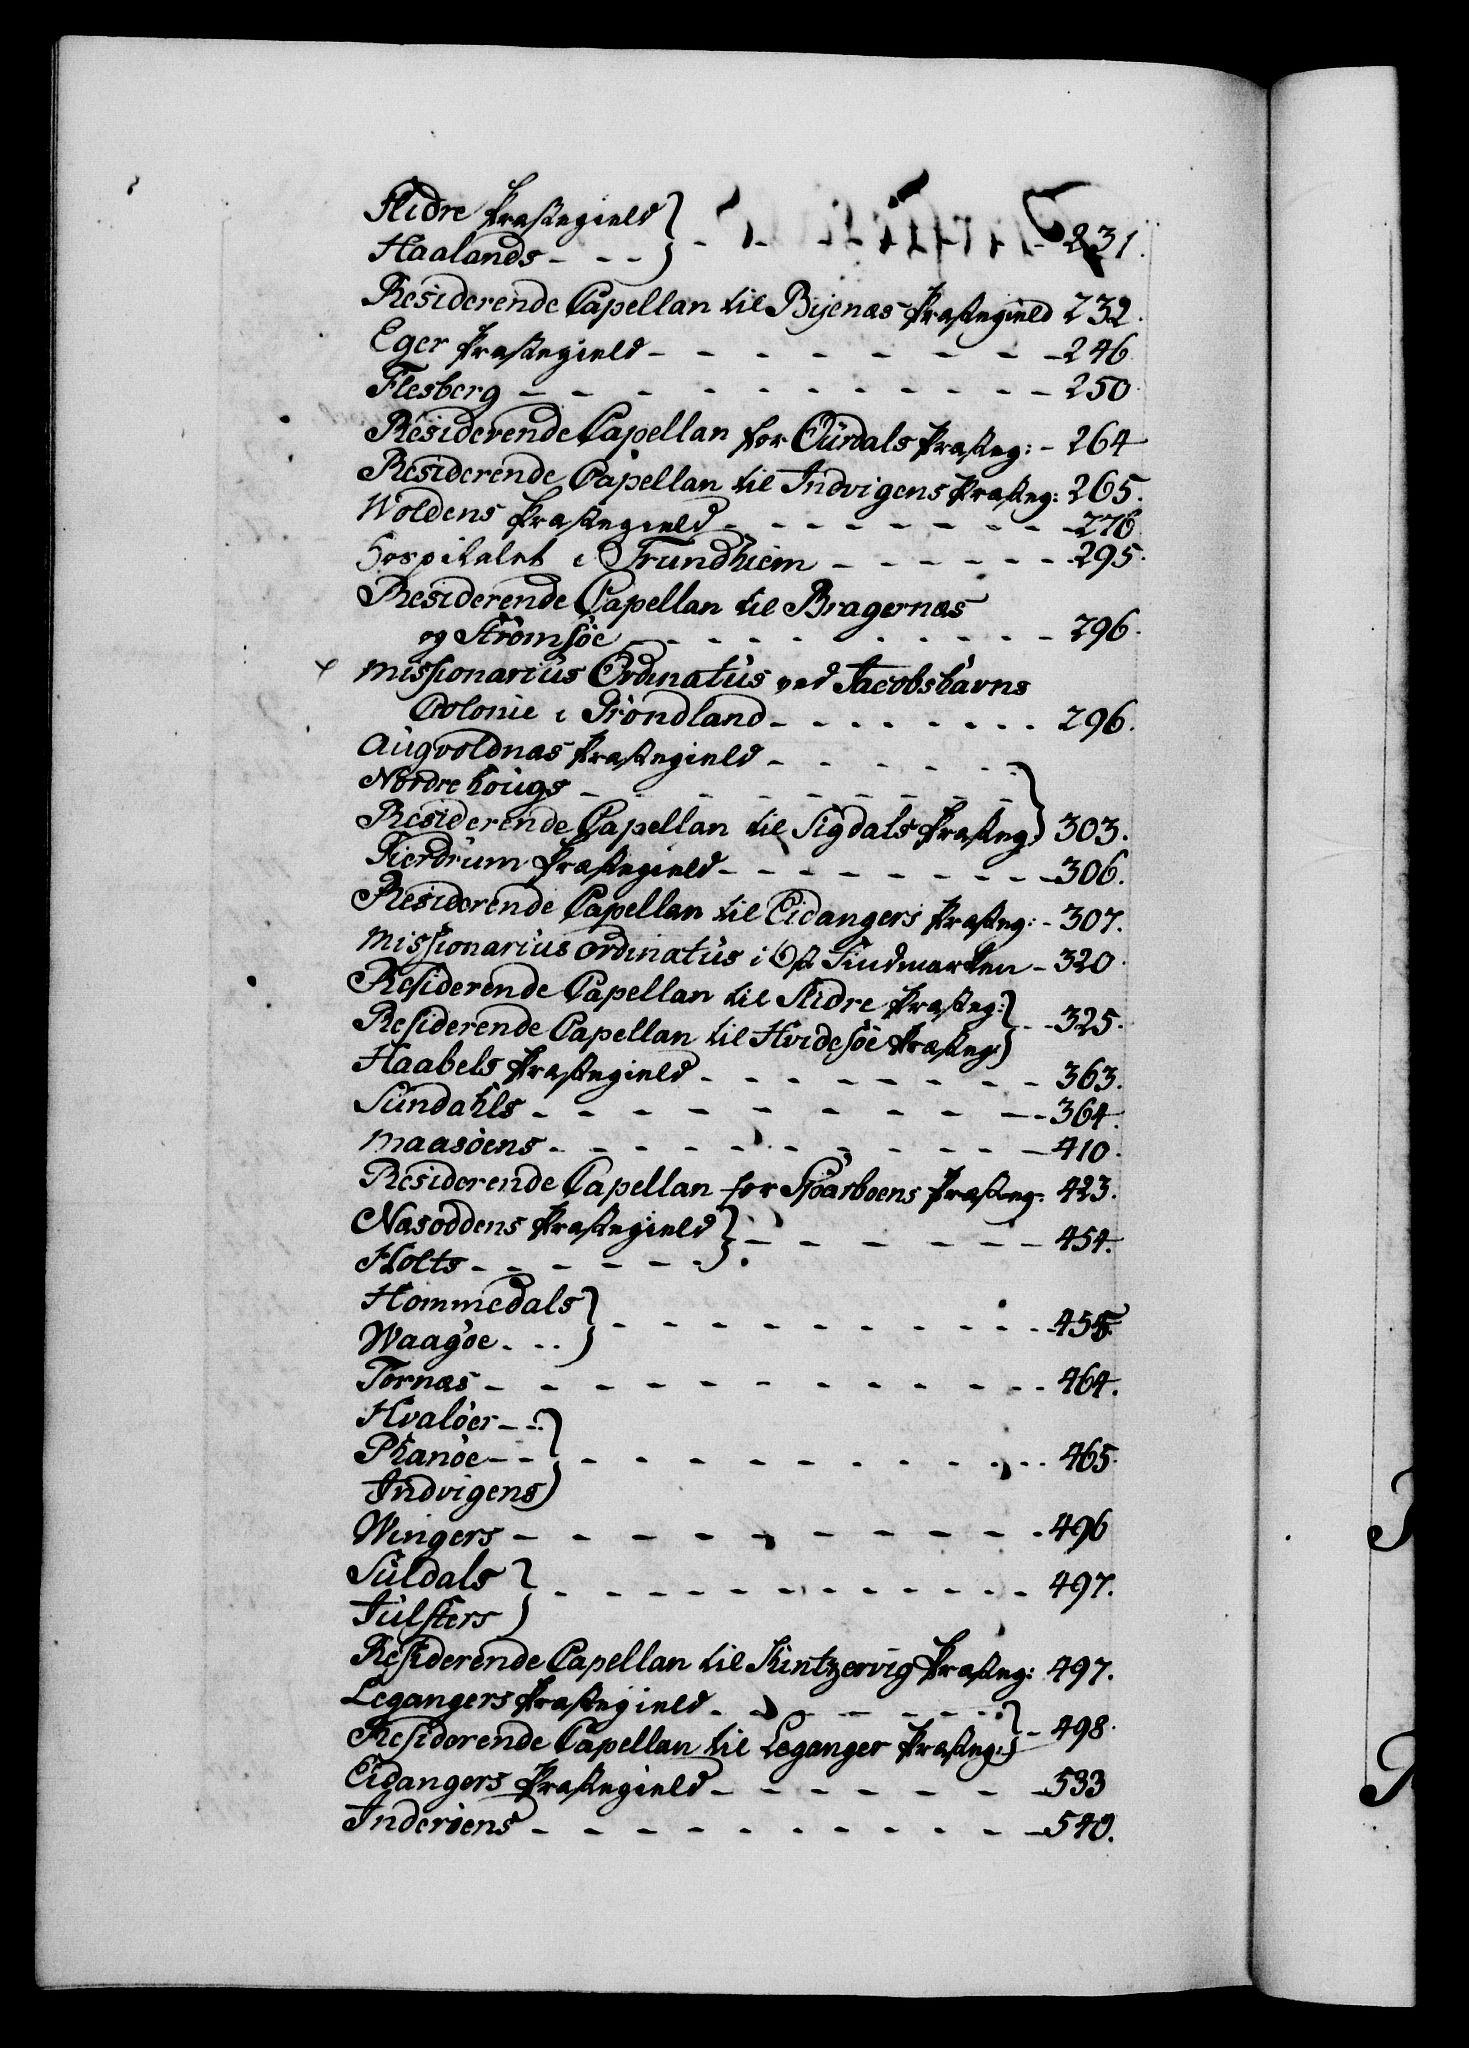 Slidre Præstegield } - - - - 231.
Haalands - - - }
Residerende Capellan til Bijenæs Præstegield 232.
Eger Præstegield - - - - - - - - 246
Flesberg - - - - - - - - - - 250.
Residerende Capellan for Ourdals Præsteg: - 264
Residerende Capellan til Indvigens Præsteg: 265.
Woldens Præstegield - - - - - - - - 276
Hospitalet i Trundhiem - - - - - - 295.
Residerende Capellan til Bragernæs
og Strømsöe - - - - - - - - 296.
Missionarius Ordinatus ved Jacobshavns
Colonie i Gröndland - - - - - - - - 296.
Augvoldnæs Præstegield - - - - - }
Nordrehougs - - - - - - - - }
Residerende Capellan til Sigdals Præsteg } 303.
Gierdrum Præstegield - - - - - - - - 306.
Residerende Capellan til Eidangers Præsteg: - 307.
Missionarius ordinatus i Ost Findmarken - 320.
Residerende Capellan til Slidre Præsteg: } - - 325.
Residerende Capellan til Hvidesöe Præsteg: }
Haabels Præstegield - - - - - - - - 363.
Sundahls - - - - - - - - - 364.
Maasöens - - - - - - - - - 410.
Residerende Capellan for Sparboens Præsteg: 423.
Næsoddens Præstegield } - - - - - - 454.
Holts - - - - - - }
Hommedals } - - - - - - - - - 455.
Waagöe - - - }
Tornæs - - - - - - - - - - 464.
Hvalöer - - }
Phanöe - - } - - - - - - - - - 465.
Indvigens }
Wingers - - - - - - - - - - 496
Suldals } - - - - - - - - - - 497.
Julsters }
Residerende Capellan til Kintzervig Præsteg: 497.
Legangers Præstegield - - - - - - } - 498.
Residerende Capellan til Leganger Præsteg: }
Eidangers Præstegield - - - - - - - 533
Inderöens - - - - - - - - - - 540.